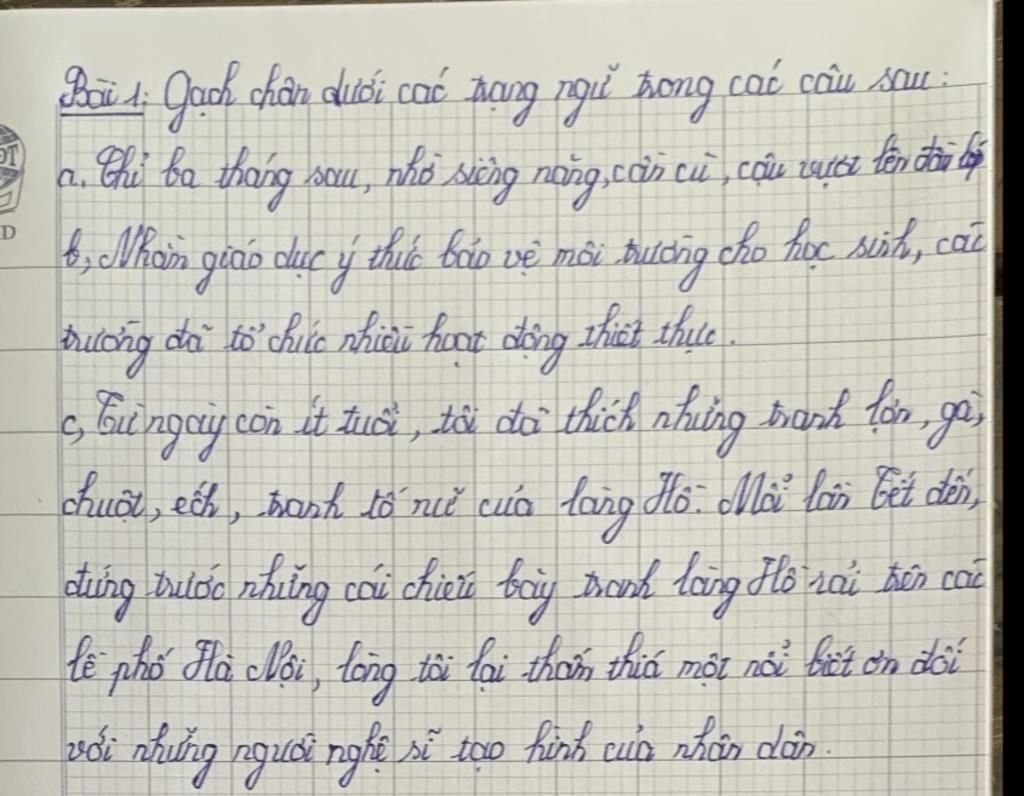 Bài 1: Gạch chân dưới các trạng ngữ trong các câu sau:
a, Chỉ ba tháng sau, nhờ siêng năng, cần cù, cậu vượt lên đầu lớp
b, Nhằm giáo dục ý thức bảo vệ môi trường cho học sinh, các
trường đã tổ chức nhiều hoạt động thiết thực.
c, Từ ngày còn ít tuổi, tôi đã thích những tranh lợn, gà,
chuột, ếch, tranh tố nữ của làng Hồ. Mỗi lần Tết đến,
đứng trước những cái chiếu bày tranh làng Hồ rải trên các
lề phố Hà Nội, lòng tôi lại thấm thía một nỗi biết ơn đối
với những người nghệ sĩ tạo hình của nhân dân.